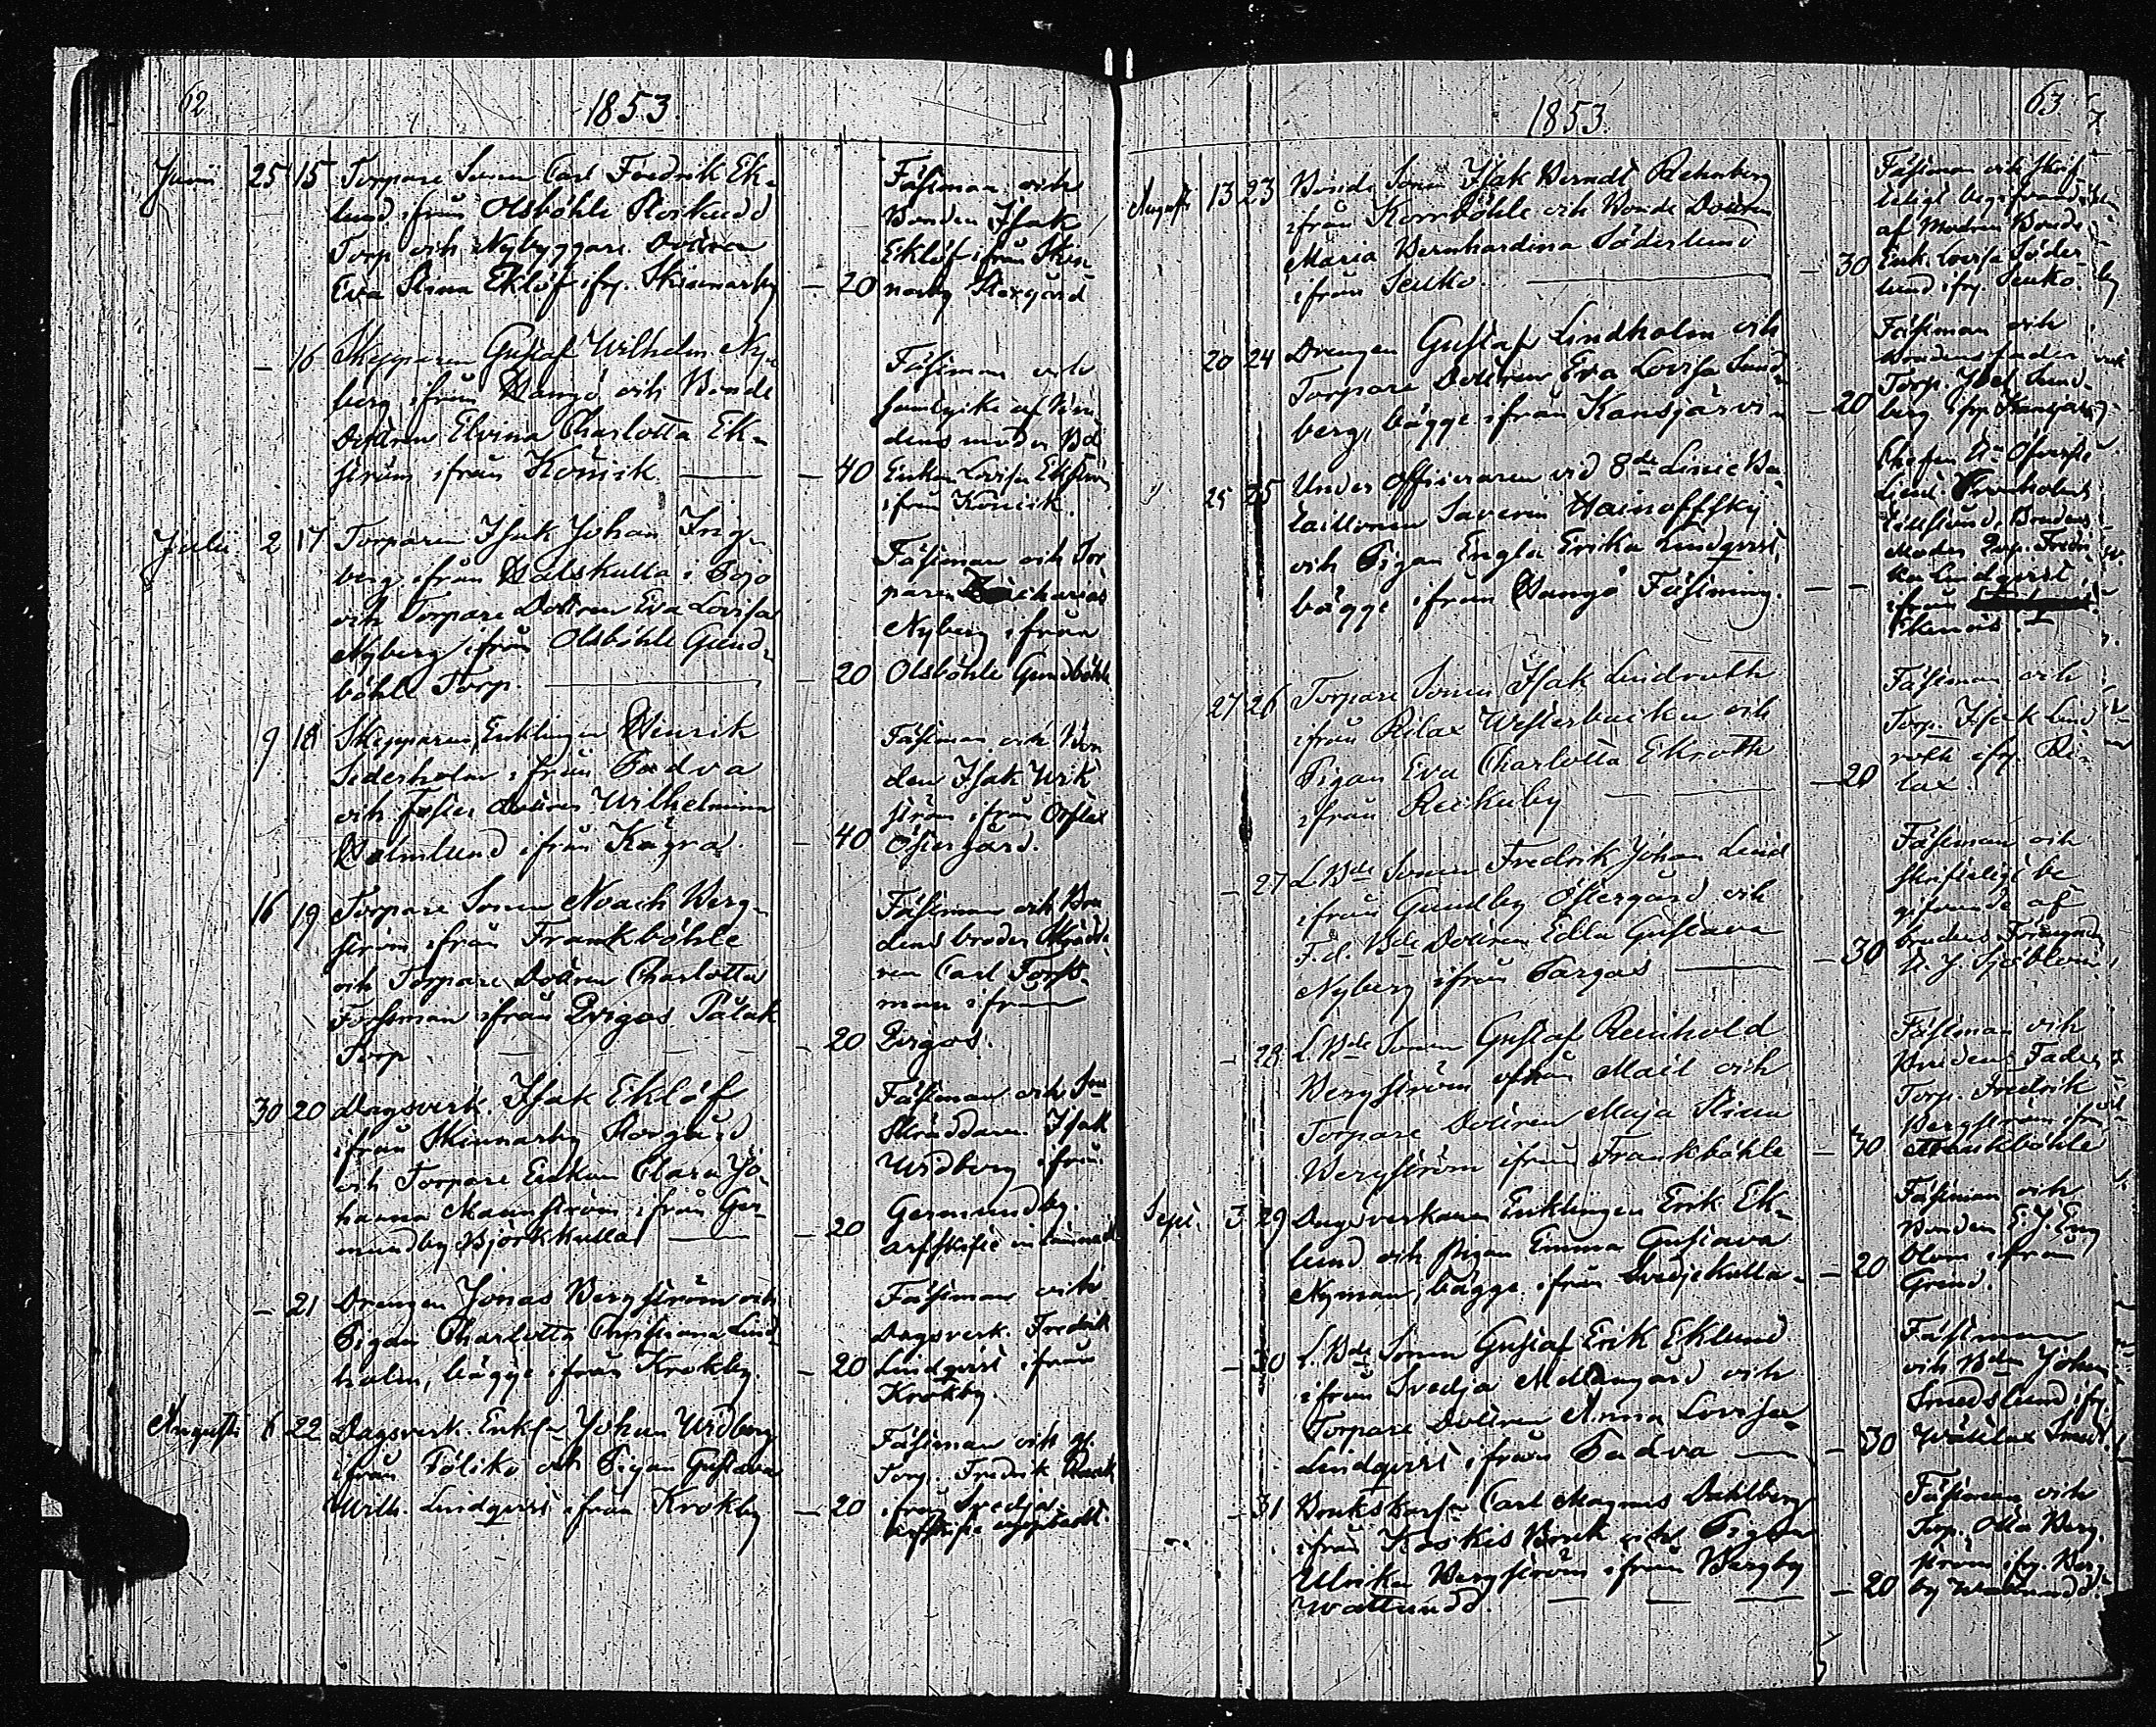 62
1853.
Junii 25 15 Torpare Sonen Carl Fredrik Ek-
lund ifrån Olsböhle
Torp och Nybyggare Dottren
Eva Stina Eklöf ifr. Skinnarby — 20
Fästman och
Bonden Isak
Eklöf ifrån Skin-
narby Storgård
— 16 Skepparen Gustaf Wilhelm Ny-
berg ifrån Hangö och Bonde
Dottren Elvina Charlotta Ek-
ström ifrån Koncik — 40
Fästman och
samtycke af Bru-
dens moder Bd
Enkan Lovisa Ekström
ifrån Koncik.
Julii 2 17 Torparen Isak Johan Ing-
berg ifrån Halskulla i Pojo
och Torpare Dottren Eva Lovisa
Nyberg ifrån Olsböhle Gund-
böhle Torp. — 20
Fästman och Tor
paren Zacharias
Nyberg ifrån
Olsböhle Gundböhle
9 18 Skepparen Enklingen Henrik
Sederholm ifrån Padva
och Foster dottren Wilhelmina
Holmlund ifrån Kägra. — 40
Fästman och Bon
den Isak Wik
ström ifrån
Östergård.
16 19 Torpare Sonen Noach Berg-
ström ifrån Frankböhle
och Torpare Dottren Charlotta
Forssman ifrån Prigas Pålak
Torp — 20
Fästman och Bru
dens broder
ren Carl Forss-
man ifrån
30 20 Dagsverk. Isak Eklöf
ifrån Skinnarby Storgård
och Torpare Enkan Clara Jo-
hanna Mannström ifrån Ger-
mundby Björkkulla — 20
Fästman och
Skräddaren Isak
Widberg ifrån
Germundby.
arfskifte
— 21 Drengen Jonas Bergström och
Pigan Charlotta Christiana Lind-
holm, bägge ifrån Krokby. — 20
Fästman och
Dagsverk. Fredrik
Lindqvist ifrån
Krokby.
Augusti 6 22 Dagsverk. Enkl. Johan Widberg
ifrån Fölikö och Pigan Gustava
Wilh. Lindqvist ifrån Krokby — 20
Fästman och
Torp. Fredrik
ifrån Svedja.
63
1853.
Augusti 13 23 Bonde Sonen Isak Berndt Rehnberg
ifrån Kornböhle och Bonde Dottren
Maria Bernhardina Söderlund
ifrån Senko. — 30
Fästman och skrif
af Modren Bonde
Enk. Lovisa Söder-
lund ifr. Senko.
20 24 Drengen Gustaf Lindholm och
Torpare Dottren Eva Lovisa Sund-
berg, bägge ifrån Kansjärvi — 20
Fästman och
brudens fader
Torp. Joel Sund-
berg ifr. Kansjärvi
25 25 Under Officeraren vid 8de Linie Ba-
taillonen Saverin Hainoffsky
och Pigan Engla Erika Lindqvist,
bägge ifrån Hangö Fästning. — —
Chefens
Tillstånd. Brudens
Moder
Lindqvist,
ifrån
27 26 Torpare Sonen Isak Lindroth
ifrån Rilax Westerbacka och
Pigan Eva Charlotta Ekroth
ifrån Reckuby — 20
Fästman och
Torp. Isak Lind
roth ifr. Ri-
lax.
— 27 L. Bde Sonen Fredrik Johan Lind
ifrån Gundby Östergård och
F.d. Bde Dottren Edla Gustava
Nyberg ifrån Pargas — 30
Fästman och
skrifteligt be
gifvande af
brudens
Sjöblom.
— 28 L. Bde Sonen Gustaf Reinhold
Bergström ifrån Mail och
Torpare Dottren Maja Stina
Bergström ifrån Frankböhle — 40
Fästman och
Brudens Fader
Torp. Fredrik
Bergström ifrån
Frankböhle
Sept. 3 29 Dagsverkaren Enklingen Erik Ek-
lund och Pigan Emma Gustava
Nyman, bägge ifrån Svedjekulla — 20
Fästman och
Bonden E. J. Eng
blom ifrån
Grind.
— 30 L. Bde Sonen Gustaf Erik Eklund
ifrån Svedja Mellangård och
Torpare Dottren Anna Lovisa
Lindqvist ifrån Padva — 30
Fästman
och Bden Johan
Smedslund ifr.
— 31 Carl Magnus Dahlberg
ifrån Koskis Bruk och Pigan
Ulrika Bergström ifrån Bergby
Wattundd. — 20
Fästman och
Torp. Otto Berg-
ström ifr. Berg-
by Wattundd.